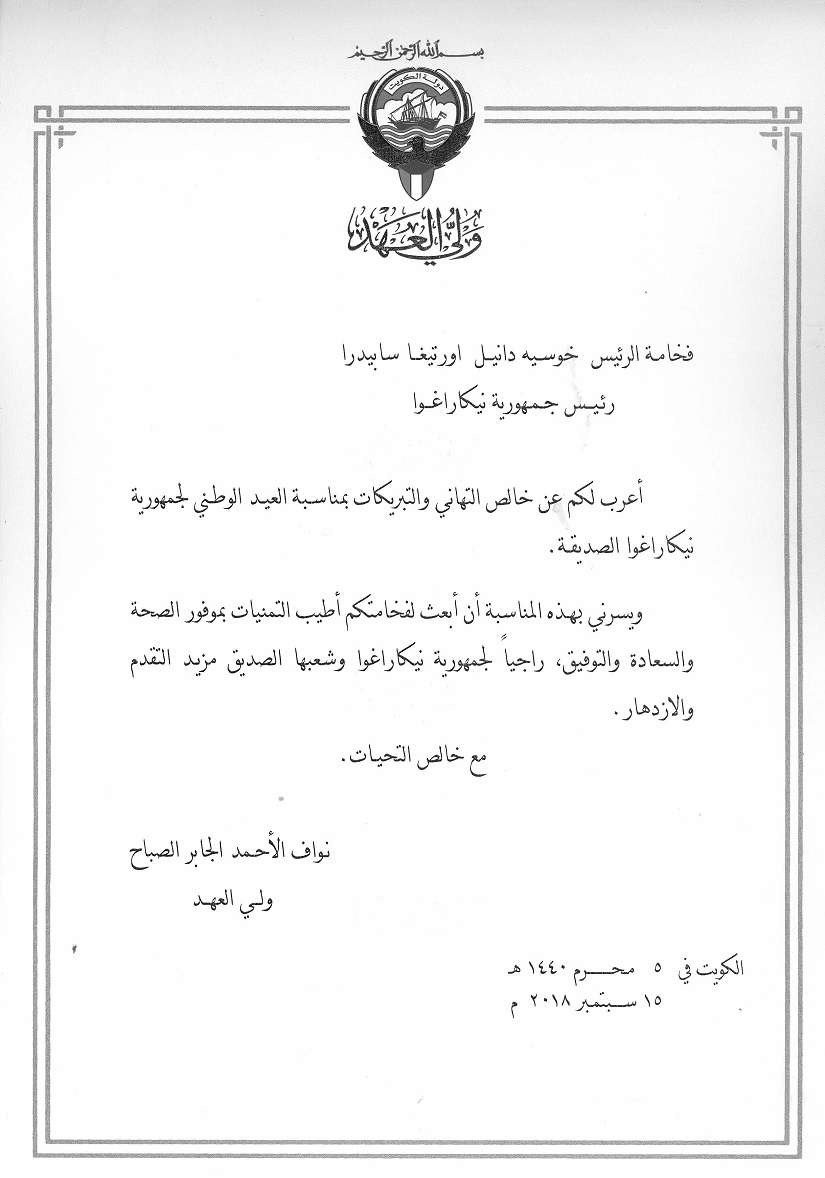 بسم الله الرحمن الرحيم
دولة الكويت
ولي العهد
فخامة الرئيس خوسيه دانيل اورتيغا سابيدرا
رئيس جمهورية نيكاراغوا
أعرب لكم عن خالص التهاني والتبريكات بمناسبة العيد الوطني لجمهورية
نيكاراغوا الصديقة.
ويسرني بهذه المناسبة أن أبعث لفخامتكم أطيب التمنيات بموفور الصحة
والسعادة والتوفيق، راجياً لجمهورية نيكاراغوا وشعبها الصديق مزيد التقدم
والازدهار.
مع خالص التحيات.
نواف الأحمد الجابر الصباح
ولي العهد
الكويت في ٥ محرم ١٤٤٠ هـ
١٥ سبتمبر ٢٠١٨ م